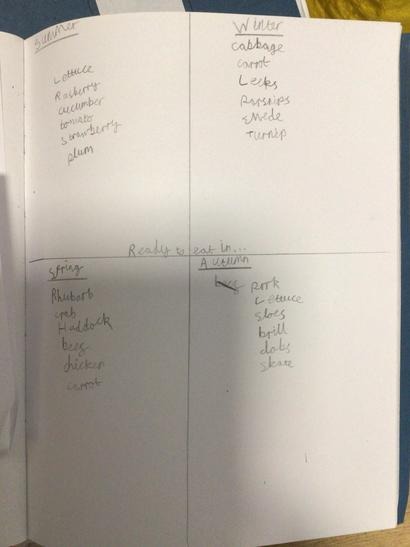 Summer
Lettuce
Rasberry
cucumber
tomato
strawberry
plum
Winter
cabbage
carrot
Leeks
Parsnips
swede
Turnip
Ready to eat in...
Spring
Rhubarb
crab
Haddock
beeg
chicken
carrot
Autumn
pork
Lettuce
sloes
brill
dabs
skate